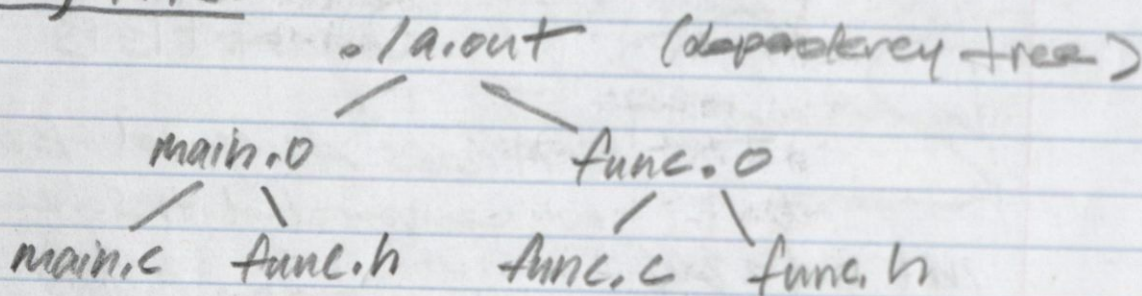 ./a.out (dependency tree)
main.o func.o
main.c func.h func.c func.h